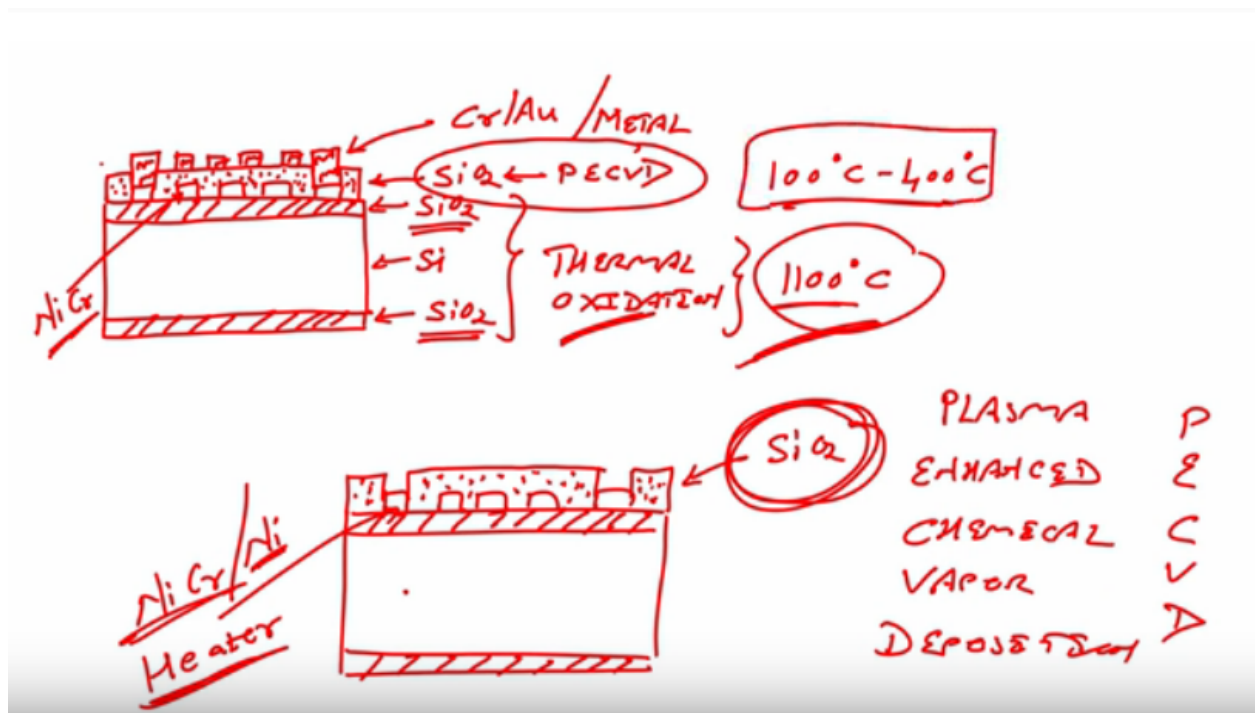 Cr/Au /METAL
SiO2 ← PECVD
100°C - 400°C
SiO2
Si
THERMAL
OXIDATION
1100°C
NiCr
SiO2
SiO2
PLASMA P
ENHANCED E
CHEMECAL C
VAPOR V
DEPOSETION D
NiCr/Ni
Heater